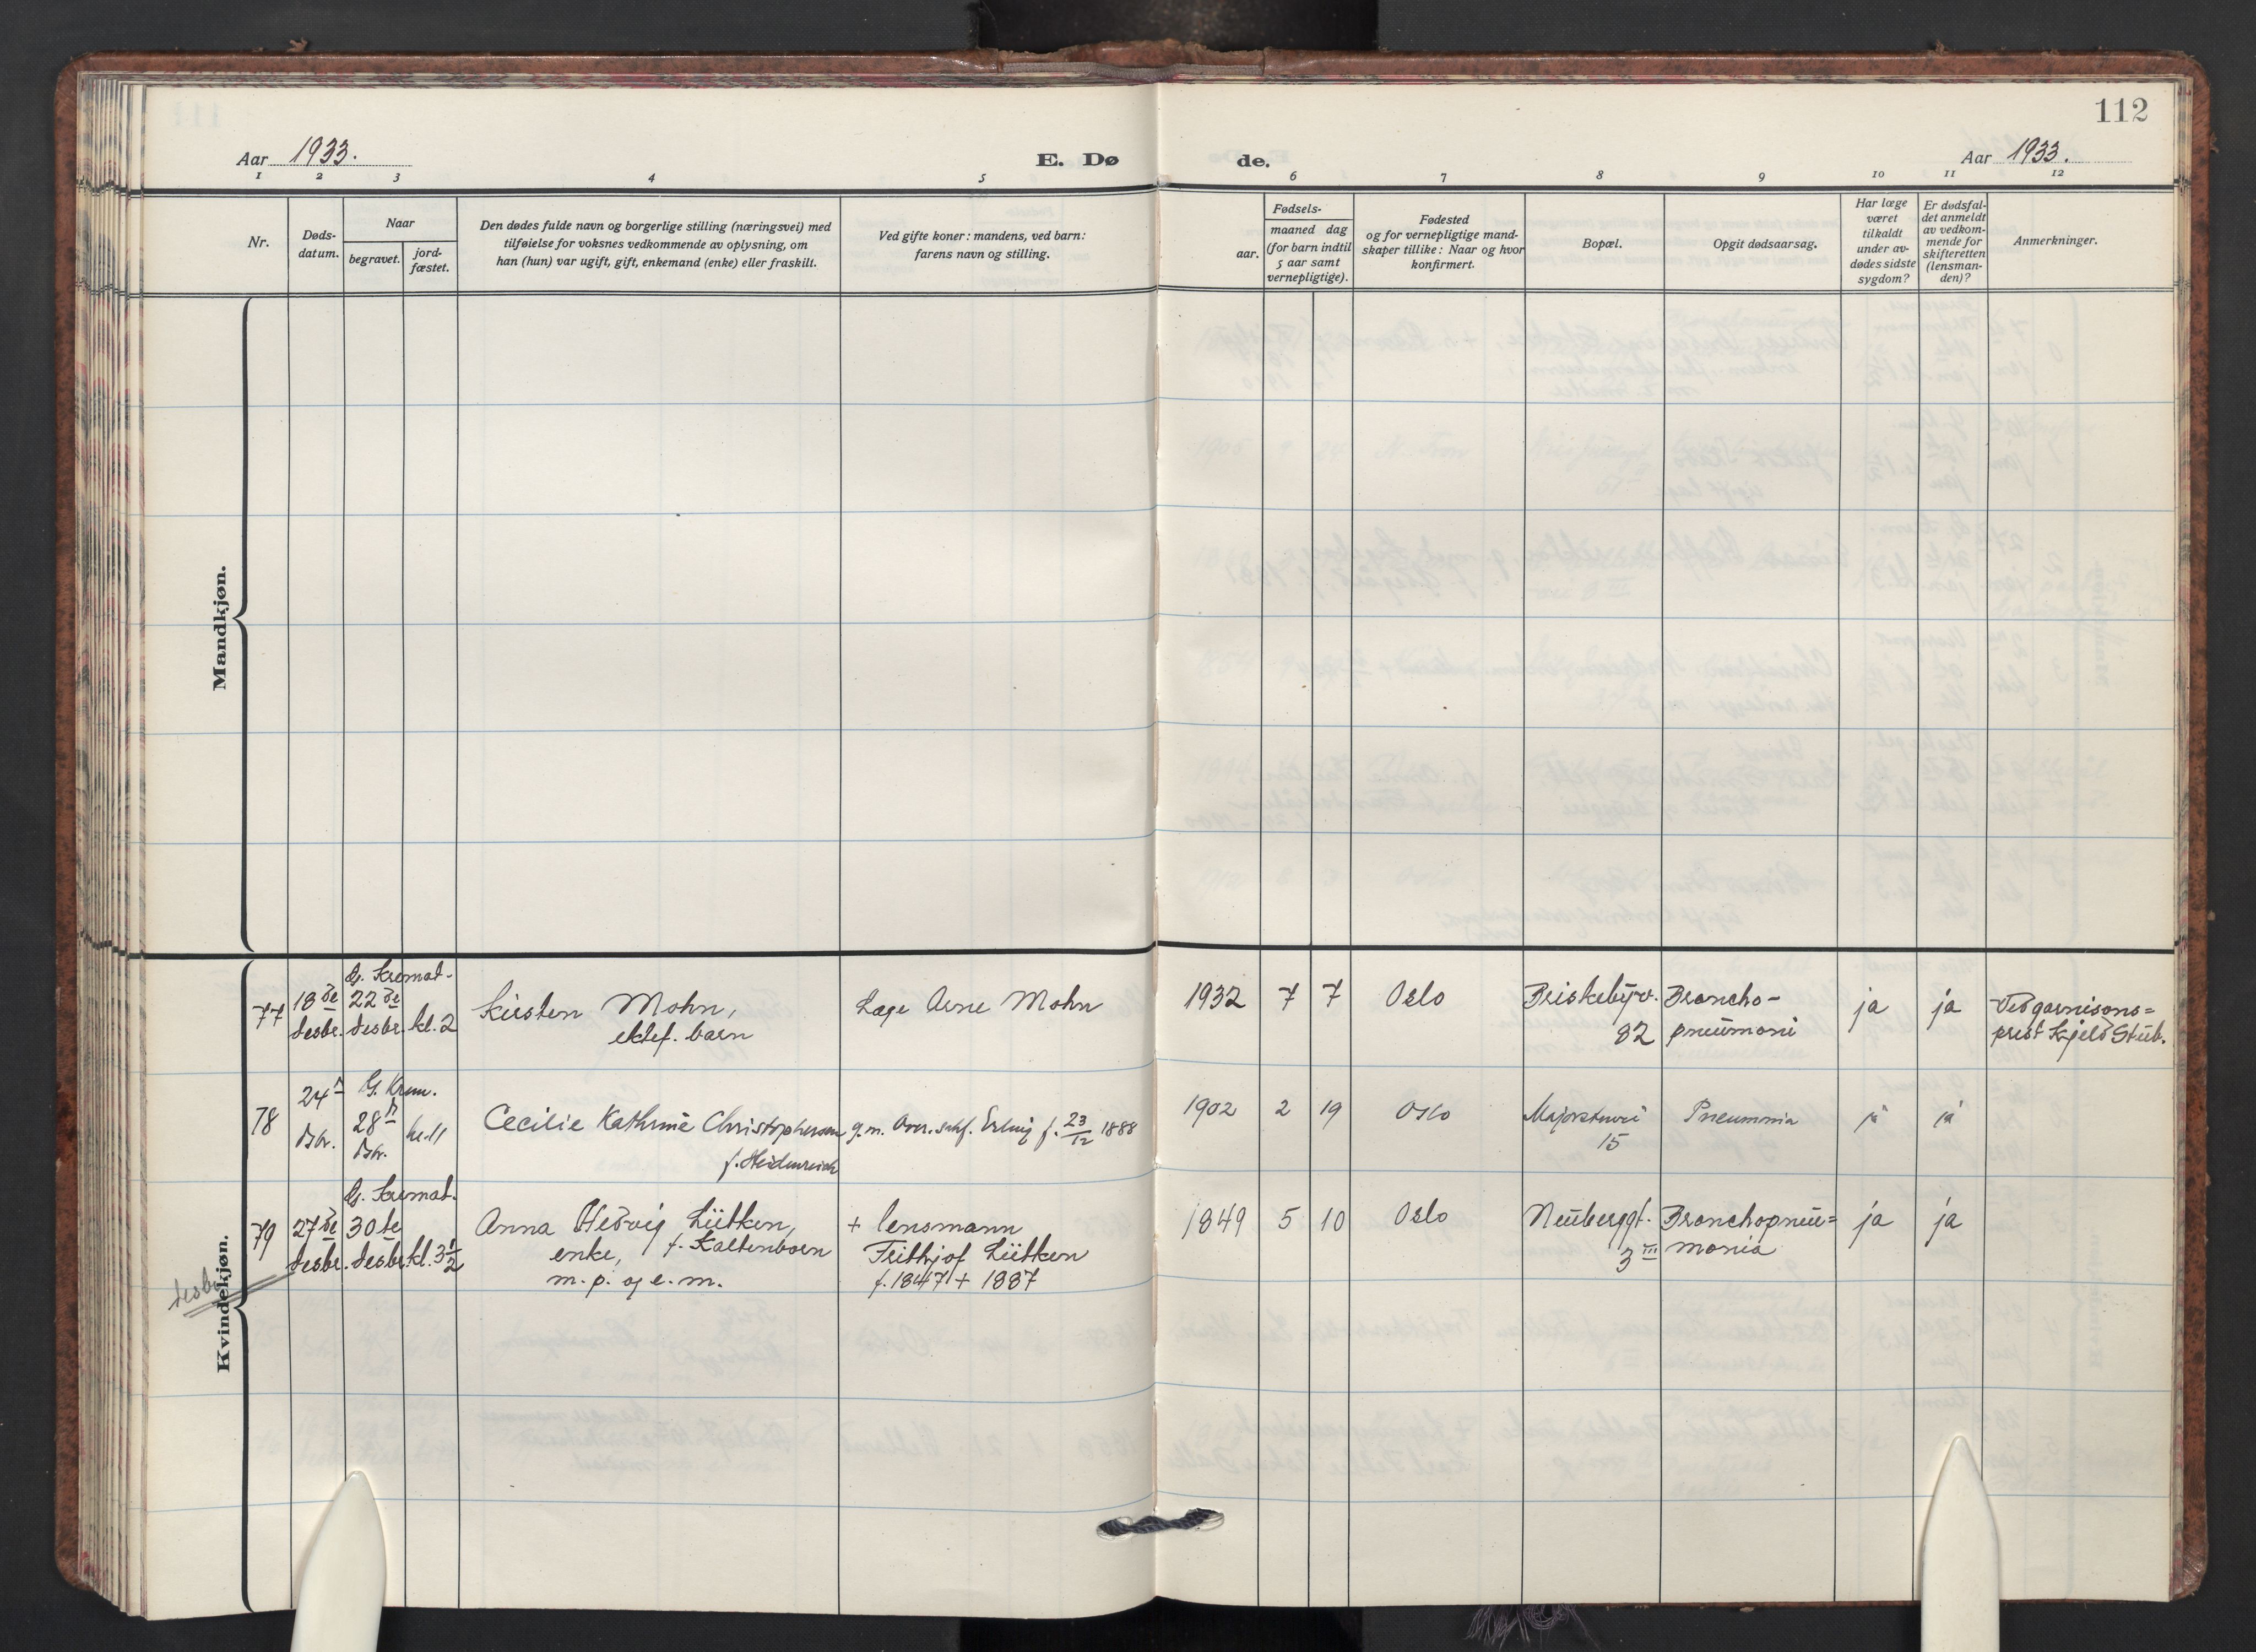 112
Aar 1933.
E. Dø
de.
Aar 1933.
1 2 3 4 5 6 7 8 9 10 11 12
Nr.
Døds-
datum.
Naar
begravet.
jord-
fæstet.
Den dødes fulde navn og borgerlige stilling (næringsvei) med
tilføielse for voksnes vedkommende av oplysning, om
han (hun) var ugift, gift, enkemand (enke) eller fraskilt.
Ved gifte koner: mandens, ved barn:
farens navn og stilling.
Fødsels-
aar.
maaned dag
(for barn indtil
5 aar samt
vernepligtige).
Fødested
og for vernepligtige mand-
skaper tillike: Naar og hvor
konfirmert.
Bopæl.
Opgit dødsaarsag.
Har læge
været
tilkaldt
under av-
dødes sidste
sygdom?
Er dødsfal-
det anmeldt
av vedkom-
mende for
skifteretten
(lensman-
den)?
Anmerkninger.
Mandkjøn.
Kvindekjøn.
desbr.
77
18de
desbr.
G. Kremat-
22de
desbr.
kl. 2
Kirsten Mohn,
ektef. barn
Læge Arne Mohn
1932
7
7
Oslo
Briskebyv.
82
Broncho-
pneumoni
ja
ja
Ved garnisons=
prest Kjeld Stub.
78
24
Dsbr.
G. Krem.
28
Dsbr.
kl. 11
Cecilie Kathrine Christophersen
f. Heidenreich
g. m. Erling f. 23/12 1888
1902
2
19
Oslo
Majorstuvei
15
Pneumonia
ja
ja
79
27de
desbr.
G. Kremat.
30te
desbr.
kl. 3 1/2
Anna Hedvig Lütken,
enke, f. Kaltenborn
m. p. og e. m.
+ lensmann
Frithjof Lütken
f. 1847 + 1887
1849
5
10
Oslo
Neuberggt.
3 III
Bronchopneu=
monia
ja
ja